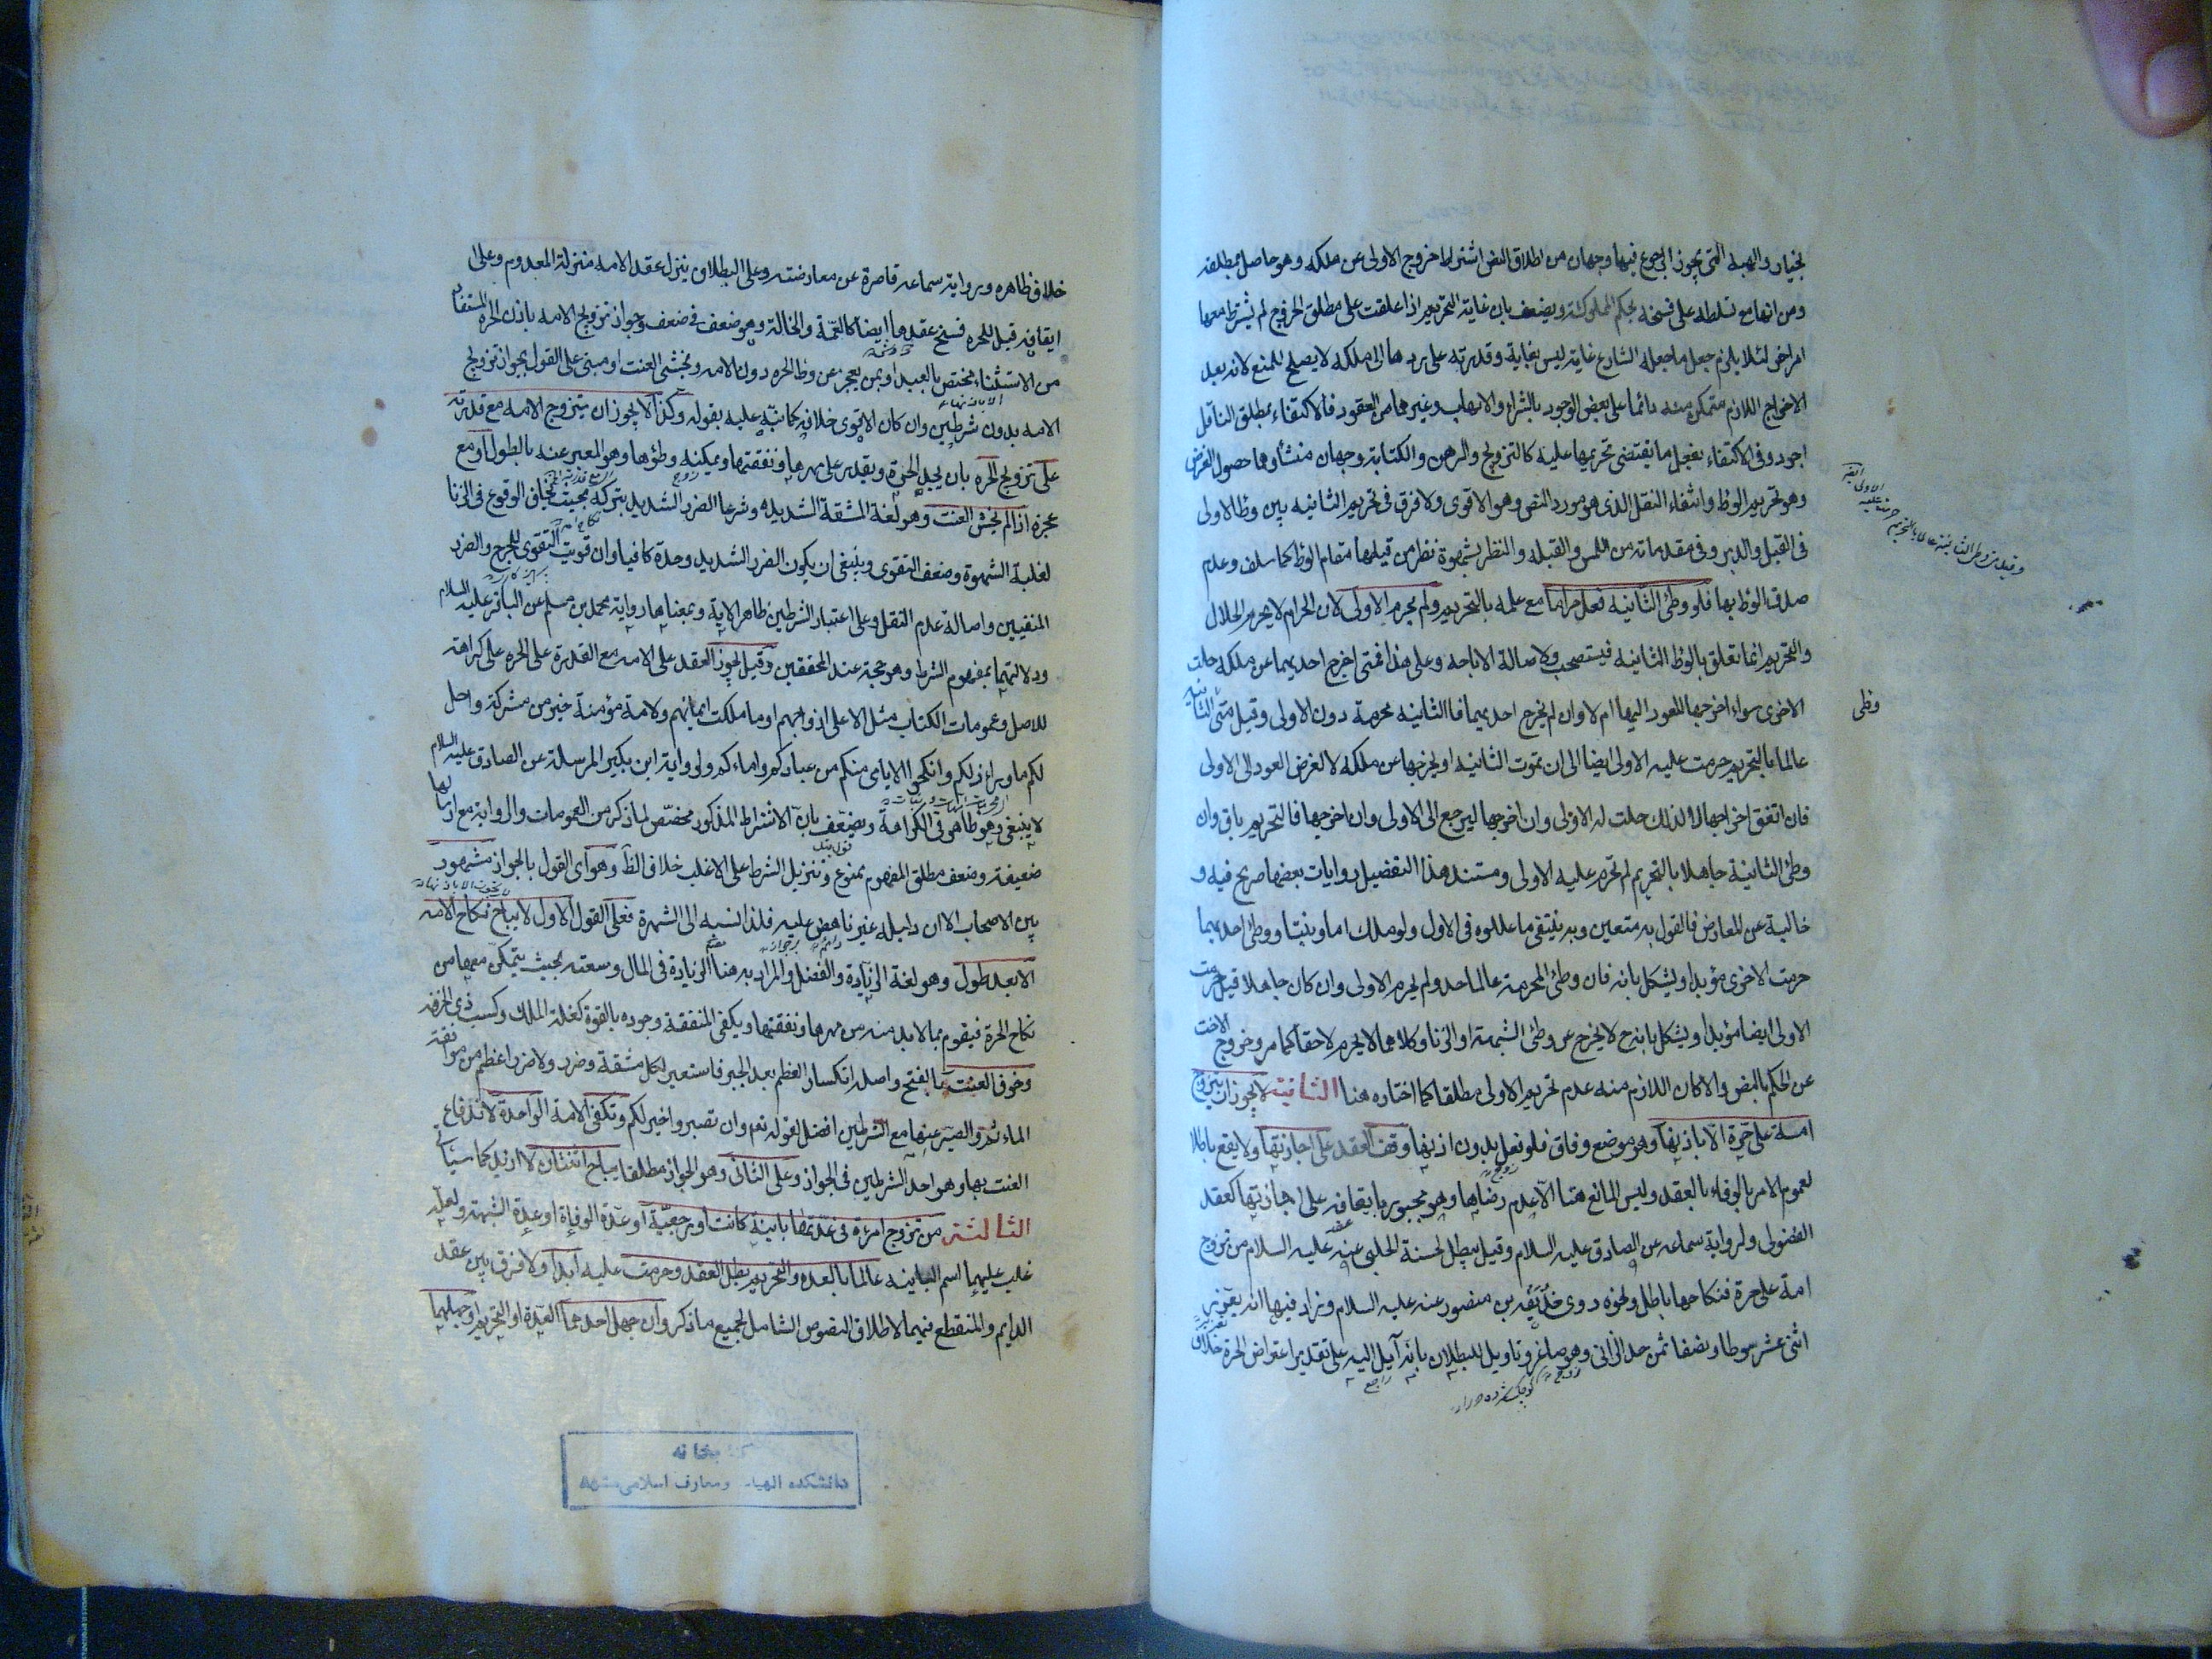 بخيار والهبة التى يجوز الرجوع فيها وجهان من اطلاق النص اشتراط خروج الاولى عن ملكه وهو حاصل بمطلقه
ومن انها مع تسلطه على فسخه بحكم المملوكة ويضعف بان غاية التحريم اذا علقت على مطلق الخروج لم يشترط معها
امر اخر لئلا يلزم جعل ما جعله الشارع غاية ليس بغاية وقدرته على ردها الى ملكه لا يصلح للمنع لانه بعد
الاخراج اللازم متمكن منه دائما على بعض الوجوه بالشراء والاتهاب وغيرهما من العقود فالاكتفاء بمطلق الناقل
اجود وفى الاكتفاء بفعل ما يقتضى تحريمها عليه كالتزويج والرهن والكتابة وجهان منشأوهما حصول الغرض
وهو تحريم الوطء وانتفاء النقل الذى هو مورد النص وهو الاقوى ولا فرق فى تحريم الثانيه بين وطء الاولى
فى القبل والدبر وفى مقدماته من اللمس والقبله والنظر بشهوة نظر من قيامها مقام الوطء كما سلف وعدم
صدق الوطء بها فلو وطئ الثانيه فعل حراما مع علمه بالتحريم ولم يحرم الاولى لان الحرام لا يحرم الحلال
والتحريم انما تعلق بالوطء الثانيه فيستصحب ولاصالة الاباحه وعلى هذا فمتى اخرج احديهما عن ملكه حلت
الاخرى سواء اخرجها للعود اليها ام لا وان لم يخرج احديهما فالثانيه محرمة دون الاولى وقيل متى وطى الثانيه
عالما بالتحريم حرمت عليه الاولى ايضا الى ان تموت الثانيه او يخرجها عن ملكه لا لغرض العود الى الاولى
فان اتفق اخراجها لا لذلك حلت له الاولى وان اخرجها ليرجع الى الاولى وان اخرجها فالتحريم باق وان
وطئ الثانية جاهلا بالتحريم لم تحرم عليه الاولى ومستند هذا التفصيل روايات بعضها صريح فيه و
خالية عن المعارض فالقول به متعين وبه ينتفى ما عللوه فى الاول ولو ملك اما وبنتا ووطئ احديهما
حرمت الاخرى مؤبدا ويشكل بانه فان وطئ المحرمة عالما حد ولم يحرم الاولى وان كان جاهلا قيل حرمت
الاولى ايضا مؤبدا ويشكل بانه ح لا يخرج عن وطئ الشبهة او الزنا وكلاهما لا يحرم لاحقا كما مر وخروج الاخت
عن الحكم بالنص والا كان اللازم منه عدم تحريم الاولى مطلقا كما اختاره هنا الثانية لا يجوز ان يتزوج
امة على حرة الا باذنها وهو موضع وفاق فلو فعل بدون اذنها وقف العقد على اجازتها ولا يقع باطلا
لعموم الامر بالوفاء بالعقد وليس المانع هنا الا عدم رضاها وهو مجبور بايقافه على اجازتها كعقد
الفضولى ولرواية سماعه عن الصادق عليه السلام وقيل يبطل لحسنة الحلبى عنه عليه السلام من تزوج
امة على حرة فنكاحها باطل ونحوه روى حذيفة بن منصور عنه عليه السلام وزاد فيها انه يعزر
اثنى عشر سوطا ونصفا ثمن حد الزانى وهو صاغر وتاويل للبطلان بانه آيل اليه على تقدير اعتراض الحرة خلاف
وقيل من وطى الثانية عالما بالتحريم حرمت عليه الاولى ايضا
وطى
خلاف ظاهره ورواية سماعه قاصرة عن معارضته وعلى البطلان ينزل عقد الامه منزلة المعدوم وعلى
ايقافه قبل للحره فسخ عقدها ايضا كالعمة والخالة وهو ضعف فى ضعف وجواز تزويج الامه باذن الحره المستفاد
من الاستثناء مختص بالعبيد او بمن يعجز عن وطء الحره دون الامه ويخشى العنت او مبنى على القول بجواز تزويج
الامه بدون شرطين وان كان الاقوى خلافه كما نبه عليه بقوله وكذا لا يجوز ان يتزوج الامه مع قدرته
على تزويج الحره بان يجد الحرة ويقدر على مهرها ونفقتها ويمكنه وطؤها وهو المعبر عنه بالطول او مع
عجزه اذا لم يخش العنت وهو لغة المشقة الشديدة وشرعا الضرر الشديد بتركه بحيث يخاف الوقوع فى الزنا
لغلبة الشهوة وضعف التقوى وينبغى ان يكون الضرر الشديد وحده كافيا وان قويت التقوى للحرج والضرر
المنفيين واصالة عدم النقل وعلى اعتبار الشرطين ظاهر الاية وبمعناها رواية محمد بن مسلم عن الباقر عليه السلام
ودلالتهما بمفهوم الشرط وهو حجة عند المحققين وقيل يجوز العقد على الامه مع القدرة على الحره على كراهة
للاصل وعمومات الكتاب مثل الا على ازواجهم او ما ملكت ايمانهم ولامة مؤمنة خير من مشركة واحل
لكم ما وراء ذلكم وانكحوا الايامى منكم من عبادكم وامائكم ولرواية ابن بكير المرسلة عن الصادق عليه السلام
لا ينبغى وهو ظاهر فى الكراهة ويضعف بان الاشتراط المذكور مخصص لما ذكر من العمومات والرواية مع ارسالها
ضعيفة وضعف مطلق المفهوم ممنوع وتنزيل الشرط على الاغلب خلاف الظ وهو اى القول بالجواز مشهور
بين الاصحاب الا ان دليله غير ناهض عليه فلذا نسبه الى الشهرة فعلى القول الاول لا يباح نكاح الامه
الا بعد طول وهو لغة الزيادة والفضل والمراد به هنا الزيادة فى المال وسعته بحيث يتمكن معها من
نكاح الحرة فيقوم بما لابد منه من مهرها ونفقتها ويكفى للنفقة وجوده بالقوة كغلة الملك وكسب ذى الحرفه
وخوف العنت بالفتح واصله انكسار العظم بعد الجبر فاستعير لكل مشقة وضرر ولا ضرر اعظم من مواقعة
الماثم والصبر عنها مع الشرطين افضل لقوله تعم وان تصبروا خير لكم وتكفى الامة الواحدة لاندفاع
العنت بها وهو احد الشرطين فى الجواز وعلى الثانى وهو الجواز مطلقا يباح اثنتان لا ازيد كما سيأتى
الثالثة من تزوج امرءة فى عدتها باينة كانت او رجعية او عدة الوفاة او عدة الشبهة ولعله
غلب عليهما اسم الباينه عالما بالعده والتحريم بطل العقد وحرمت عليه ابدا ولا فرق بين عقد
الدايم والمنقطع فيهما لاطلاق النصوص الشامل لجميع ما ذكر وان جهل احدهما العدة او التحريم او جهلهما
كتابخانه
دانشكده الهيات ومعارف اسلامى مشهد